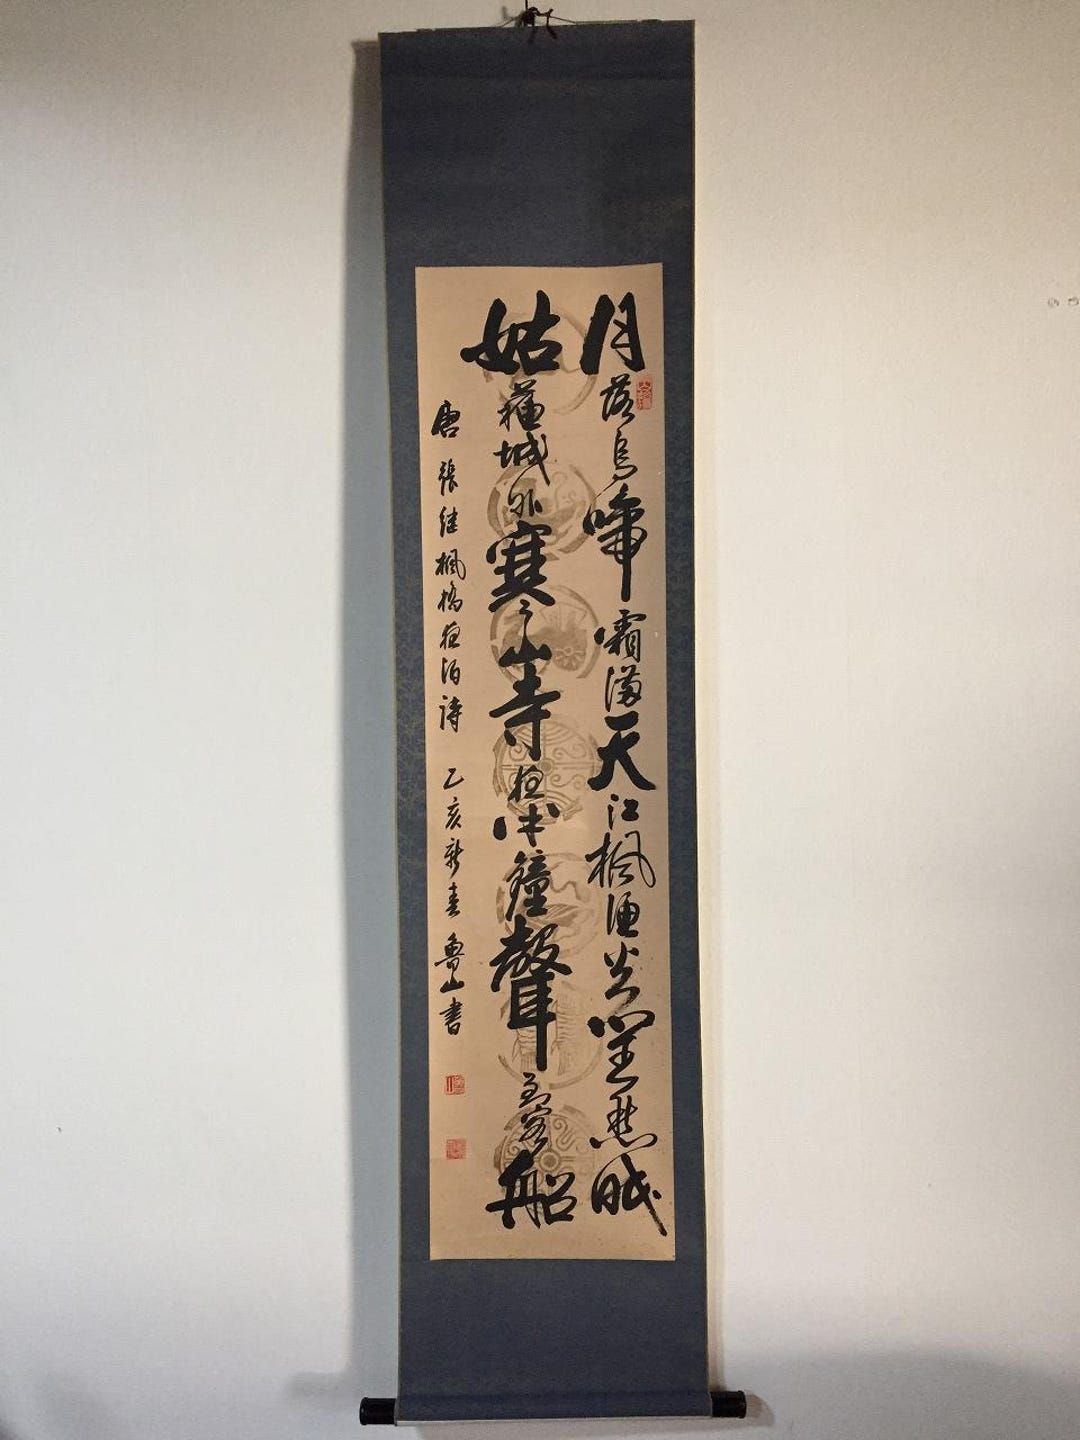 月落烏啼霜滿天江楓漁火對愁眠
姑蘇城外寒山寺夜半鐘聲到客船
唐張继楓橋夜泊詩 乙亥新春 魯山書